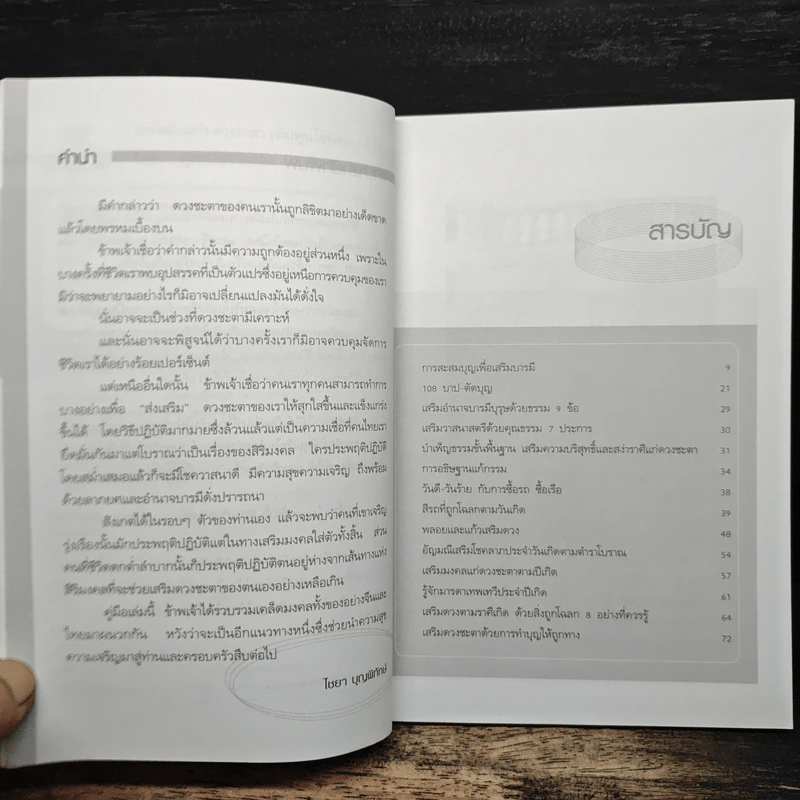 คำนำ
มีคำกล่าวว่า ดวงชะตาของคนเรานั้นถูกลิขิตมาอย่างเด็ดขาด
แล้วโดยพรหมเบื้องบน
ข้าพเจ้าเชื่อว่าคำกล่าวนั้นมีความถูกต้องอยู่ส่วนหนึ่ง เพราะใน
บางครั้งที่ชีวิตเราพบอุปสรรคที่เป็นตัวแปรซึ่งอยู่เหนือการควบคุมของเรา
มิว่าจะพยายามอย่างไรก็มิอาจเปลี่ยนแปลงมันได้ดั่งใจ
นั่นอาจจะเป็นช่วงที่ดวงชะตามีเคราะห์
และนั่นอาจจะพิสูจน์ได้ว่าบางครั้งเราก็มิอาจควบคุมจัดการ
ชีวิตเราได้อย่างร้อยเปอร์เซ็นต์
แต่เหนืออื่นใดนั้น ข้าพเจ้าเชื่อว่าคนเราทุกคนสามารถทำการ
บางอย่างเพื่อ "ส่งเสริม" ดวงชะตาของเราให้สุกใสขึ้นและแข็งแกร่ง
ขึ้นได้ โดยวิธีปฏิบัติมากมายซึ่งล้วนแล้วแต่เป็นความเชื่อที่คนไทยเรา
ยึดมั่นกันมาแต่โบราณว่าเป็นเรื่องของสิริมงคล ใครประพฤติปฏิบัติ
โดยสม่ำเสมอแล้วก็จะมีโชควาสนาดี มีความสุขความเจริญ ถึงพร้อม
ด้วยลาภยศและอำนาจบารมีดั่งปรารถนา
สังเกตได้ในรอบๆ ตัวของท่านเอง แล้วจะพบว่าคนที่เขาเจริญ
รุ่งเรืองนั้นมักประพฤติปฏิบัติแต่ในทางเสริมมงคลใส่ตัวทั้งสิ้น ส่วน
คนที่ชีวิตตกต่ำลำบากนั้นก็ประพฤติปฏิบัติตนอยู่ห่างจากเส้นทางแห่ง
สิริมงคลที่จะช่วยเสริมดวงชะตาของตนเองอย่างเหลือเกิน
คู่มือเล่มนี้ ข้าพเจ้าได้รวบรวมเคล็ดมงคลทั้งของอย่างจีนและ
ไทยมาผนวกกัน หวังว่าจะเป็นอีกแนวทางหนึ่งซึ่งช่วยนำความสุข
ความเจริญมาสู่ท่านและครอบครัวสืบต่อไป
ไชยา บุญพิทักษ์
สารบัญ
การสะสมบุญเพื่อเสริมบารมี 9
108 บาป-ตัดบุญ 21
เสริมอำนาจบารมีบุรุษด้วยธรรม 9 ข้อ 29
เสริมวาสนาสตรีด้วยคุณธรรม 7 ประการ 30
บำเพ็ญธรรมขั้นพื้นฐาน เสริมความบริสุทธิ์และสง่าราศีแก่ดวงชะตา 31
การอธิษฐานแก้กรรม 34
วันดี-วันร้าย กับการซื้อรถ ซื้อเรือ 38
สีรถที่ถูกโฉลกตามวันเกิด 39
พลอยและแก้วเสริมดวง 48
อัญมณีเสริมโชคลาภประจำวันเกิดตามตำราโบราณ 54
เสริมมงคลแก่ดวงชะตาตามปีเกิด 57
รู้จักมารดาเทพเทวีประจำปีเกิด 61
เสริมดวงตามราศีเกิด ด้วยสิ่งถูกโฉลก 8 อย่างที่ควรรู้ 64
เสริมดวงชะตาด้วยการทำบุญให้ถูกทาง 72